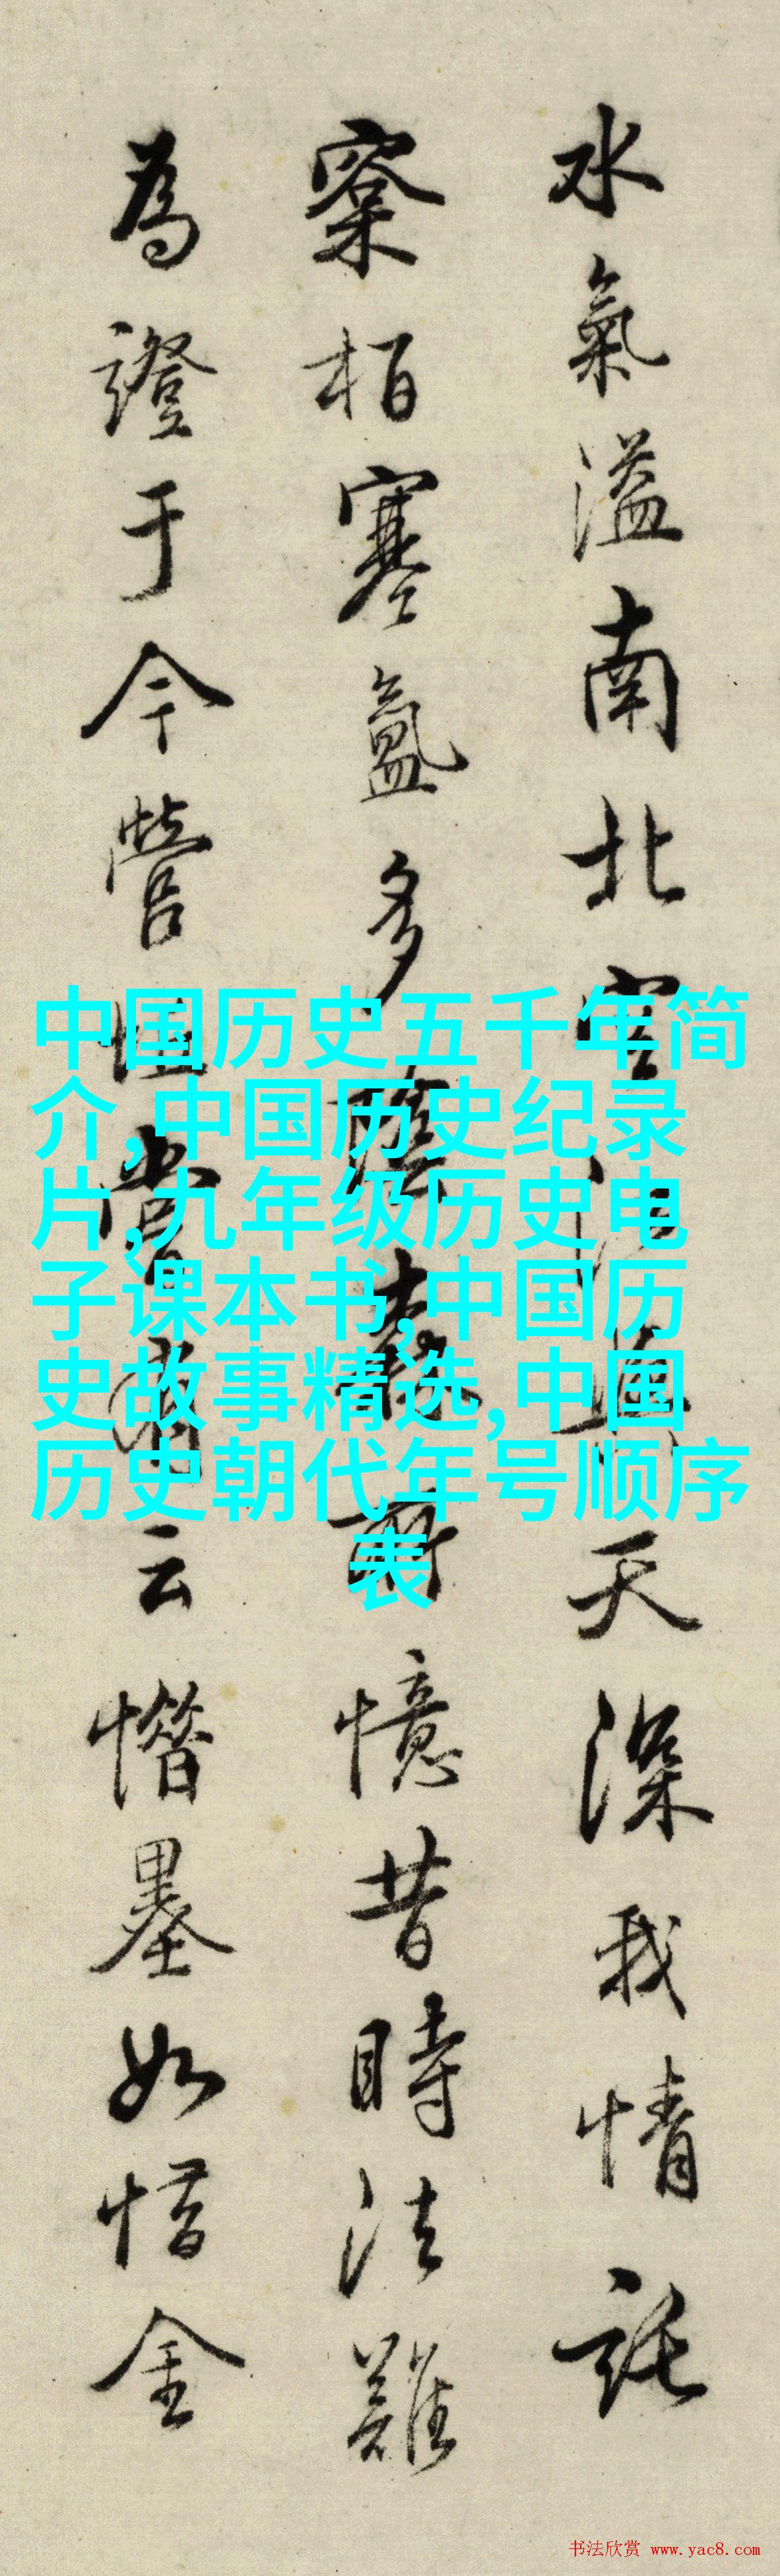 水氣溢南北宮
天深我情託
寮柏寒氳多陰
憶昔時法難
為證于今營
當
云惜墨如惜金
中国历史五千年简
介,中国历史纪录
片,九年级历史电
子课本书,中国历
史故事精选,中国
历史朝代年号顺序
表
书法欣赏 www.yac8.com